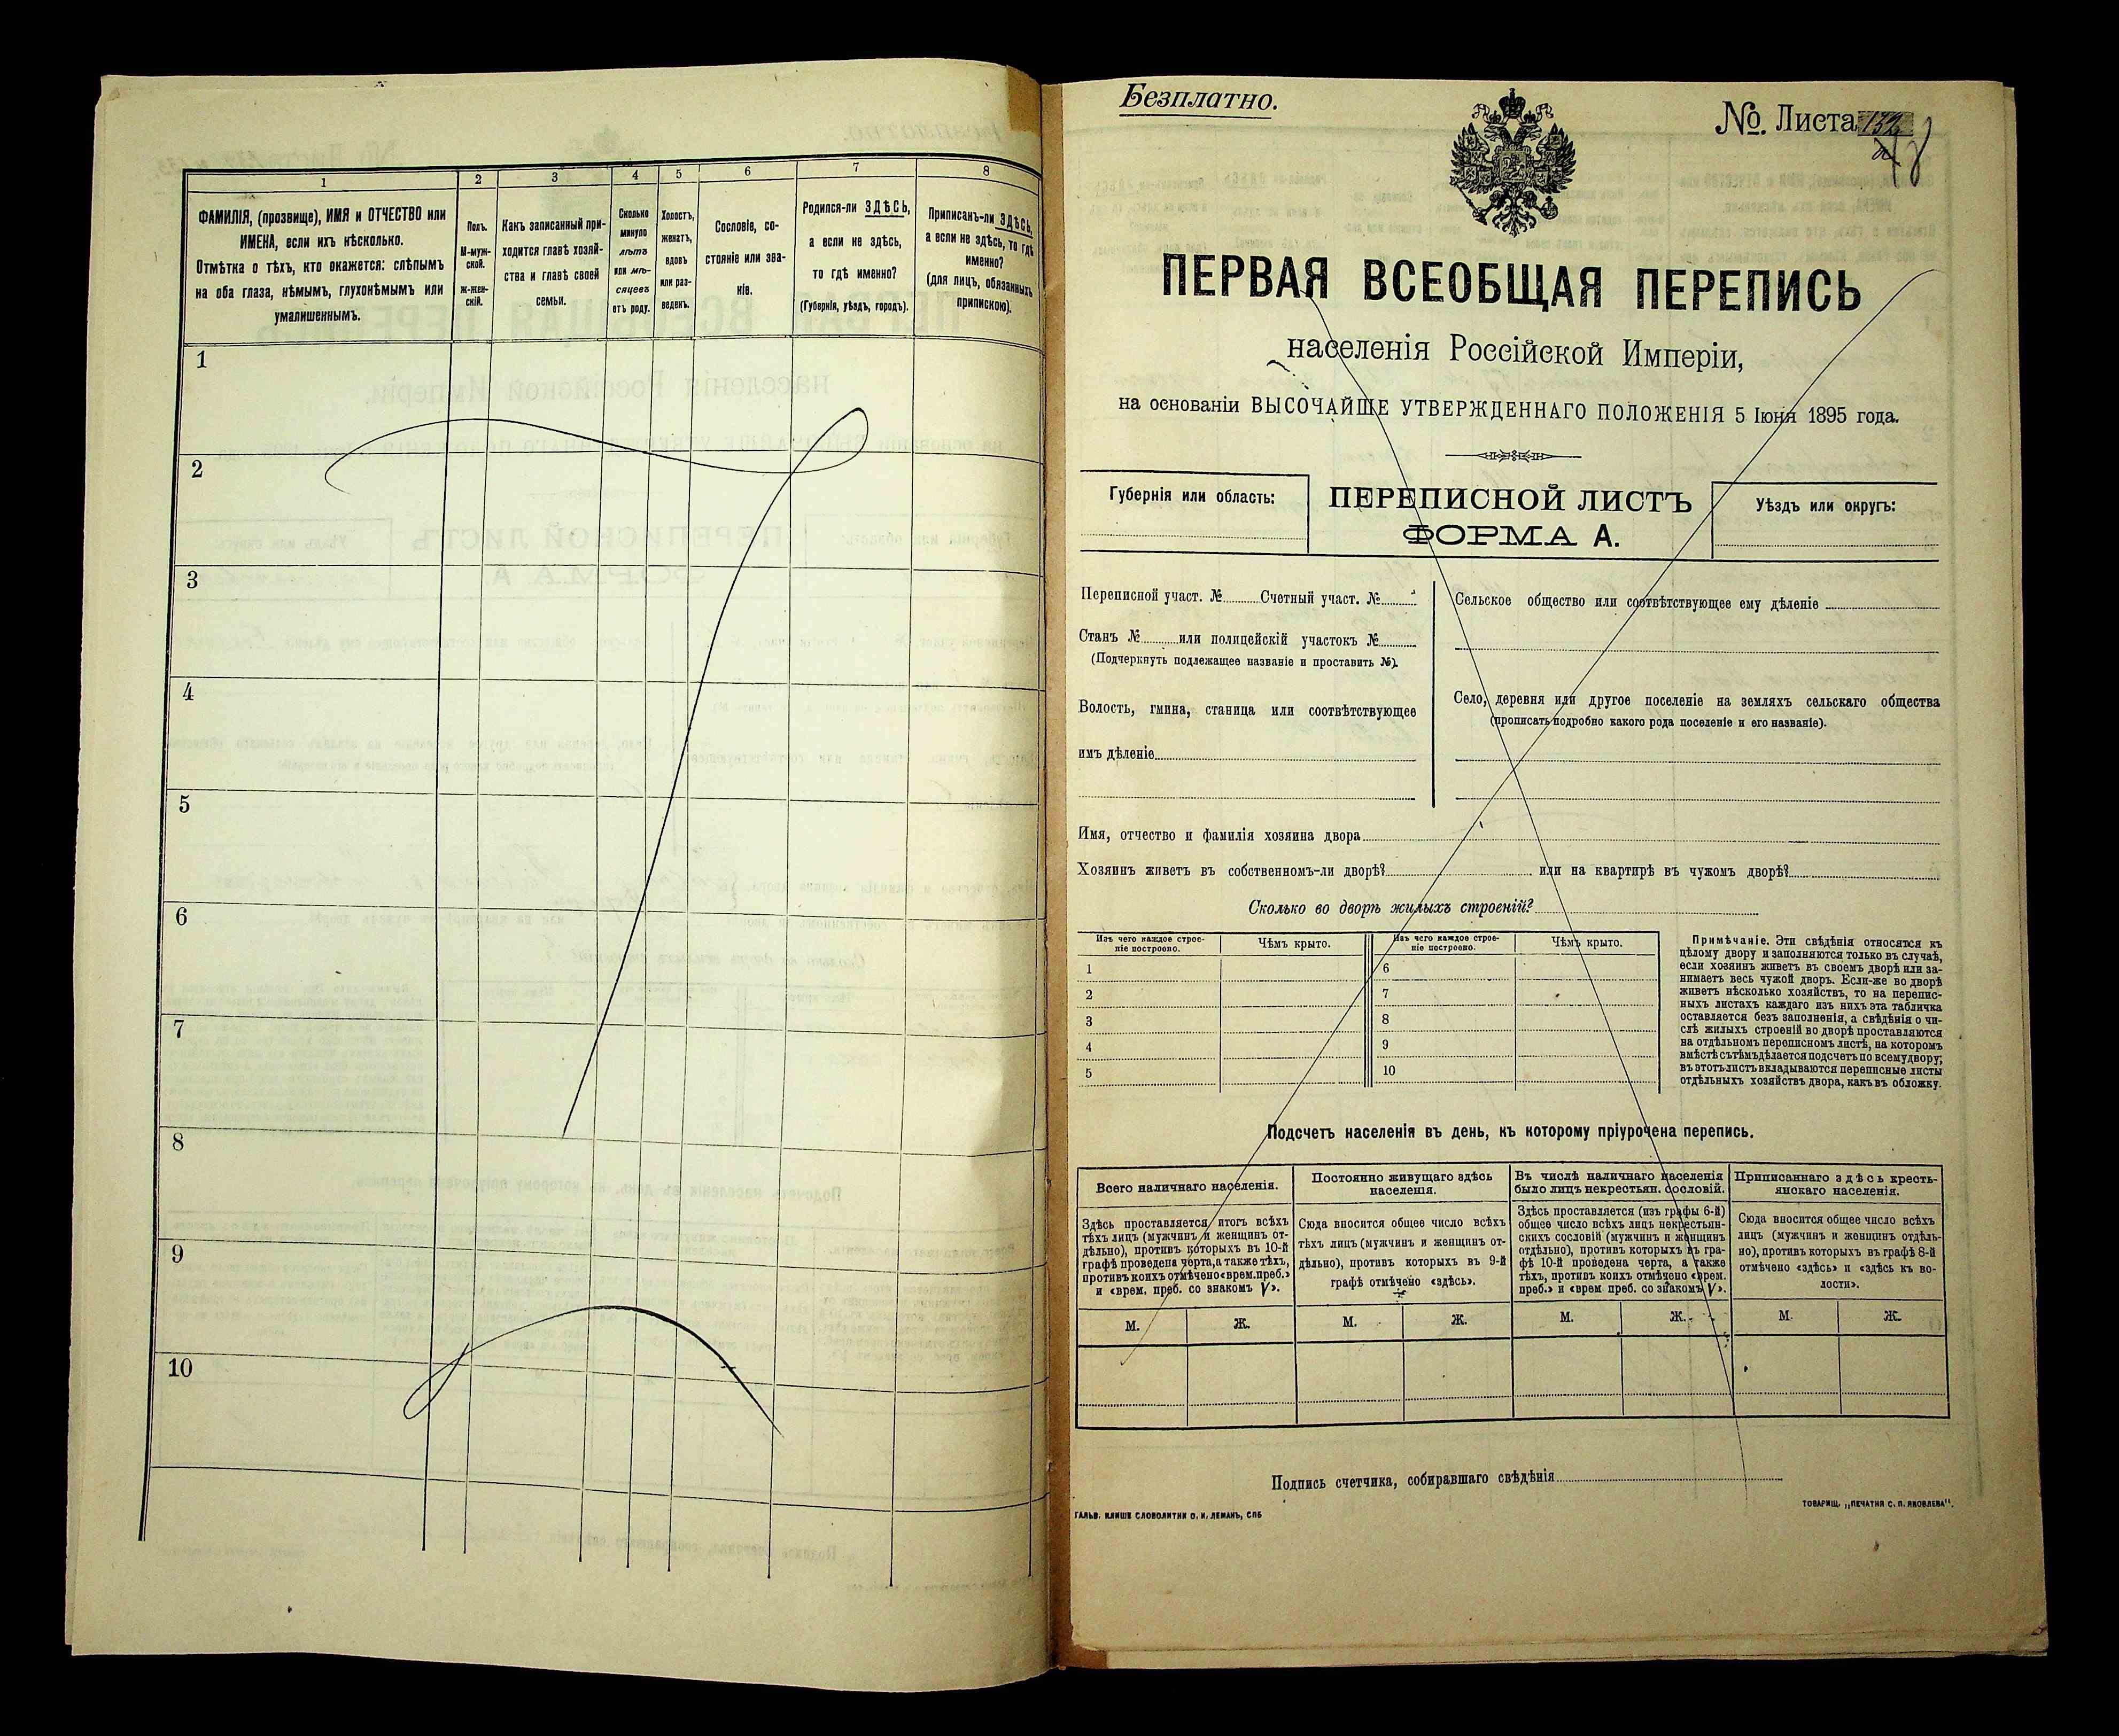 1
2
3
4
5
6
7
8
ФАМИЛІЯ, (прозвище), ИМЯ и ОТЧЕСТВО или
ИМЕНА, если ихъ нѣсколько.
Отмѣтка о тѣхъ, кто окажется: слѣпымъ
на оба глаза, нѣмымъ, глухонѣмымъ или
умалишеннымъ.
Полъ.
М-муж-
ской.
Ж-жен-
скій.
Какъ записанный при-
ходится главѣ хозяй-
ства и главѣ своей
семьи.
Сколько
минуло
лѣтъ
или мѣ-
сяцевъ
отъ роду.
Холостъ,
женатъ,
вдовъ
или раз-
веденъ.
Сословіе, со-
стояніе или зва-
ніе.
Родился-ли ЗДѢСЬ,
а если не здѣсь,
то гдѣ именно?
(Губернія, уѣздъ, городъ).
Приписанъ-ли ЗДѢСЬ,
а если не здѣсь, то гдѣ
именно?
(для лицъ, обязанныхъ
припискою).
1
2
3
4
5
6
7
8
9
10
Безплатно.
№. Листа 132
ПЕРВАЯ ВСЕОБЩАЯ ПЕРЕПИСЬ
населенія Россійской Имперіи,
на основаніи ВЫСОЧАЙШЕ УТВЕРЖДЕННАГО ПОЛОЖЕНІЯ 5 Іюня 1895 года.
Губернія или область:
ПЕРЕПИСНОЙ ЛИСТЪ
ФОРМА А.
Уѣздъ или округъ:
Переписной участ. № Счетный участ. №
Станъ № или полицейскій участокъ №
(Подчеркнуть подлежащее названіе и проставить №).
Волость, гмина, станица или соотвѣтствующее
имъ дѣленіе
Сельское общество или соотвѣтствующее ему дѣленіе
Село, деревня или другое поселеніе на земляхъ сельскаго общества
(прописать подробно какого рода поселеніе и его названіе).
Имя, отчество и фамилія хозяина двора
Хозяинъ живетъ въ собственномъ-ли дворѣ? или на квартирѣ въ чужомъ дворѣ?
Сколько во дворѣ жилыхъ строеній?
Изъ чего каждое строе-
ніе построено.
Чѣмъ крыто.
Изъ чего каждое строе-
ніе построено.
Чѣмъ крыто.
1
2
3
4
5
6
7
8
9
10
Примѣчаніе. Эти свѣдѣнія относятся къ
цѣлому двору и заполняются только въ случаѣ,
если хозяинъ живетъ въ своемъ дворѣ или за-
нимаетъ весь чужой дворъ. Если-же во дворѣ
живетъ нѣсколько хозяйствъ, то на перепис-
ныхъ листахъ каждаго изъ нихъ эта табличка
оставляется безъ заполненія, а свѣдѣнія о чи-
слѣ жилыхъ строеній во дворѣ проставляются
на отдѣльномъ переписномъ листѣ, на которомъ
вмѣстѣ съ тѣмъ дѣлается подсчетъ по всему двору;
въ этотъ листъ вкладываются переписные листы
отдѣльныхъ хозяйствъ двора, какъ въ обложку.
Подсчетъ населенія въ день, къ которому пріурочена перепись.
Всего наличнаго населенія.
Постоянно живущаго здѣсь
населенія.
Въ числѣ наличнаго населенія
было лицъ некрестьян. сословій.
Приписаннаго здѣсь кресть-
янскаго населенія.
Здѣсь проставляется итогъ всѣхъ
тѣхъ лицъ (мужчинъ и женщинъ от-
дѣльно), противъ которыхъ въ 10-й
графѣ проведена черта, а также тѣхъ,
противъ коихъ отмѣчено «врем. преб.»
и «врем. преб. со знакомъ V».
Сюда вносится общее число всѣхъ
тѣхъ лицъ (мужчинъ и женщинъ от-
дѣльно), противъ которыхъ въ 9-й
графѣ отмѣчено «здѣсь».
Здѣсь проставляется (изъ графы 6-й)
общее число всѣхъ лицъ некрестьян-
скихъ сословій (мужчинъ и женщинъ
отдѣльно), противъ которыхъ въ гра-
фѣ 10-й проведена черта, а также
тѣхъ, противъ коихъ отмѣчено «врем.
преб.» и «врем преб. со знакомъ V».
Сюда вносится общее число всѣхъ
лицъ (мужчинъ и женщинъ отдѣль-
но), противъ которыхъ въ графѣ 8-й
отмѣчено «здѣсь» и «здѣсь къ во-
лости».
М. Ж. М. Ж. М. Ж. М. Ж.
Подпись счетчика, собиравшаго свѣдѣнія
ГАЛЬВ. КЛИШЕ СЛОВОЛИТНИ О. И. ЛЕМАНЪ, СПБ
ТОВАРИЩ. „ПЕЧАТНЯ С. П. ЯКОВЛЕВА".